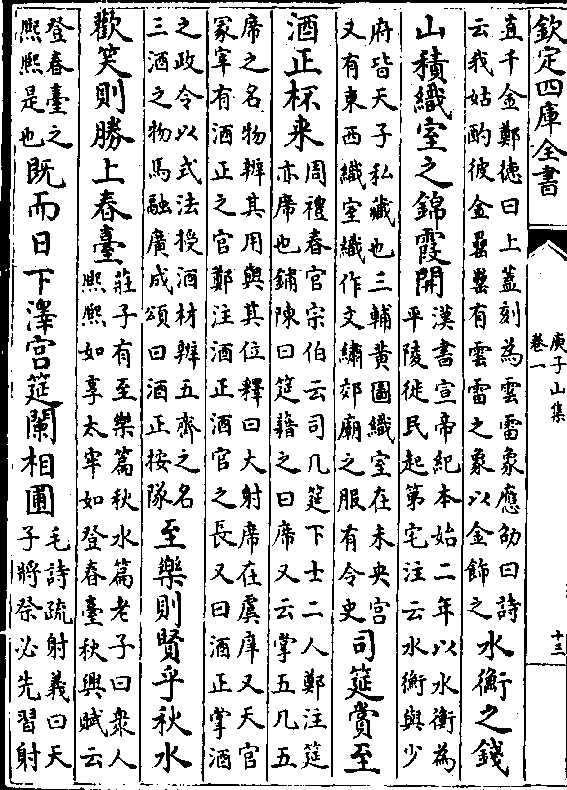 欽定四庫全書
庾子山集
卷一
十三
直千金鄭德曰上蓋刻為雲雷象應劭曰詩
云我姑酌彼金罍罍有雲雷之象以金飾之
水衡之錢
山積織室之錦霞開
漢書宣帝紀本始二年以水衡為
平陵徙民起第宅注云水衡與少
府皆天子私藏也三輔黄圖織室在未央宫
又有東西織室織作文繡郊廟之服有令史
司筵賞至
酒正杯来
周禮春官宗伯云司几筵下士二人鄭注筵
亦席也鋪陳曰筵藉之曰席又云掌五几五
席之名物辨其用與其位釋曰大射席在虞庠又天官
冡宰有酒正之官鄭注酒正酒官之長又曰酒正掌酒
之政令以式法授酒材辨五齊之名
三酒之物馬融廣成頌曰酒正按隊
至樂則賢乎秋水
歡笑則勝上春臺
莊子有至樂篇秋水篇老子曰衆人
熙熙如享太牢如登春臺秋興賦云
登春臺之
熙熙是也
既而日下澤宫筵闌相圃
毛詩疏射義曰天
子將祭必先習射